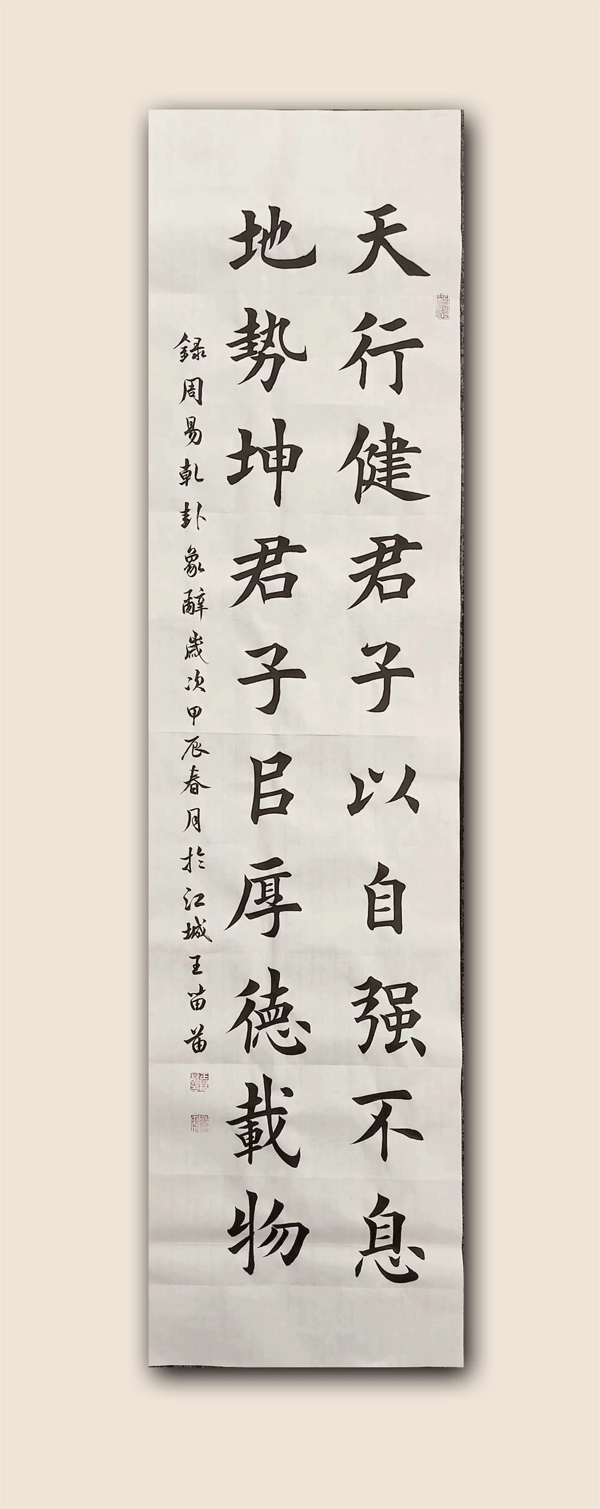 天行健君子以自强不息
地勢坤君子㠯厚德載物
録周易乾卦象辭歲次甲辰春月於江城王苗苗